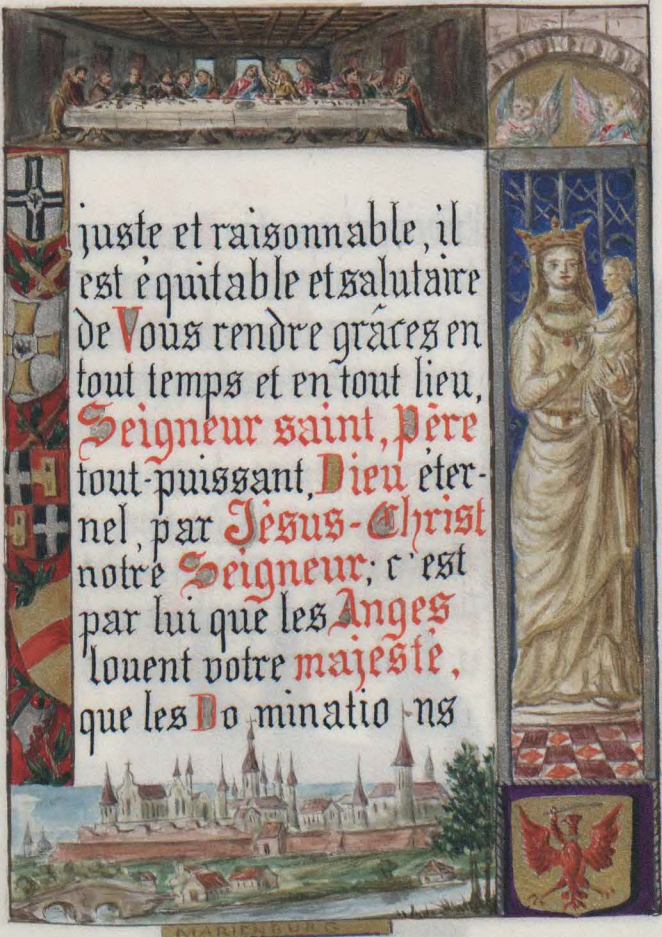 juste et raisonnable, il
est équitable et salutaire
de Vous rendre grâces en
tout temps et en tout lieu,
Seigneur saint, Père
tout-puissant, Dieu éter-
nel, par Jésus-Christ
notre Seigneur; c'est
par lui que les Anges
louent votre majesté,
que les Dominations
MARIENBURG